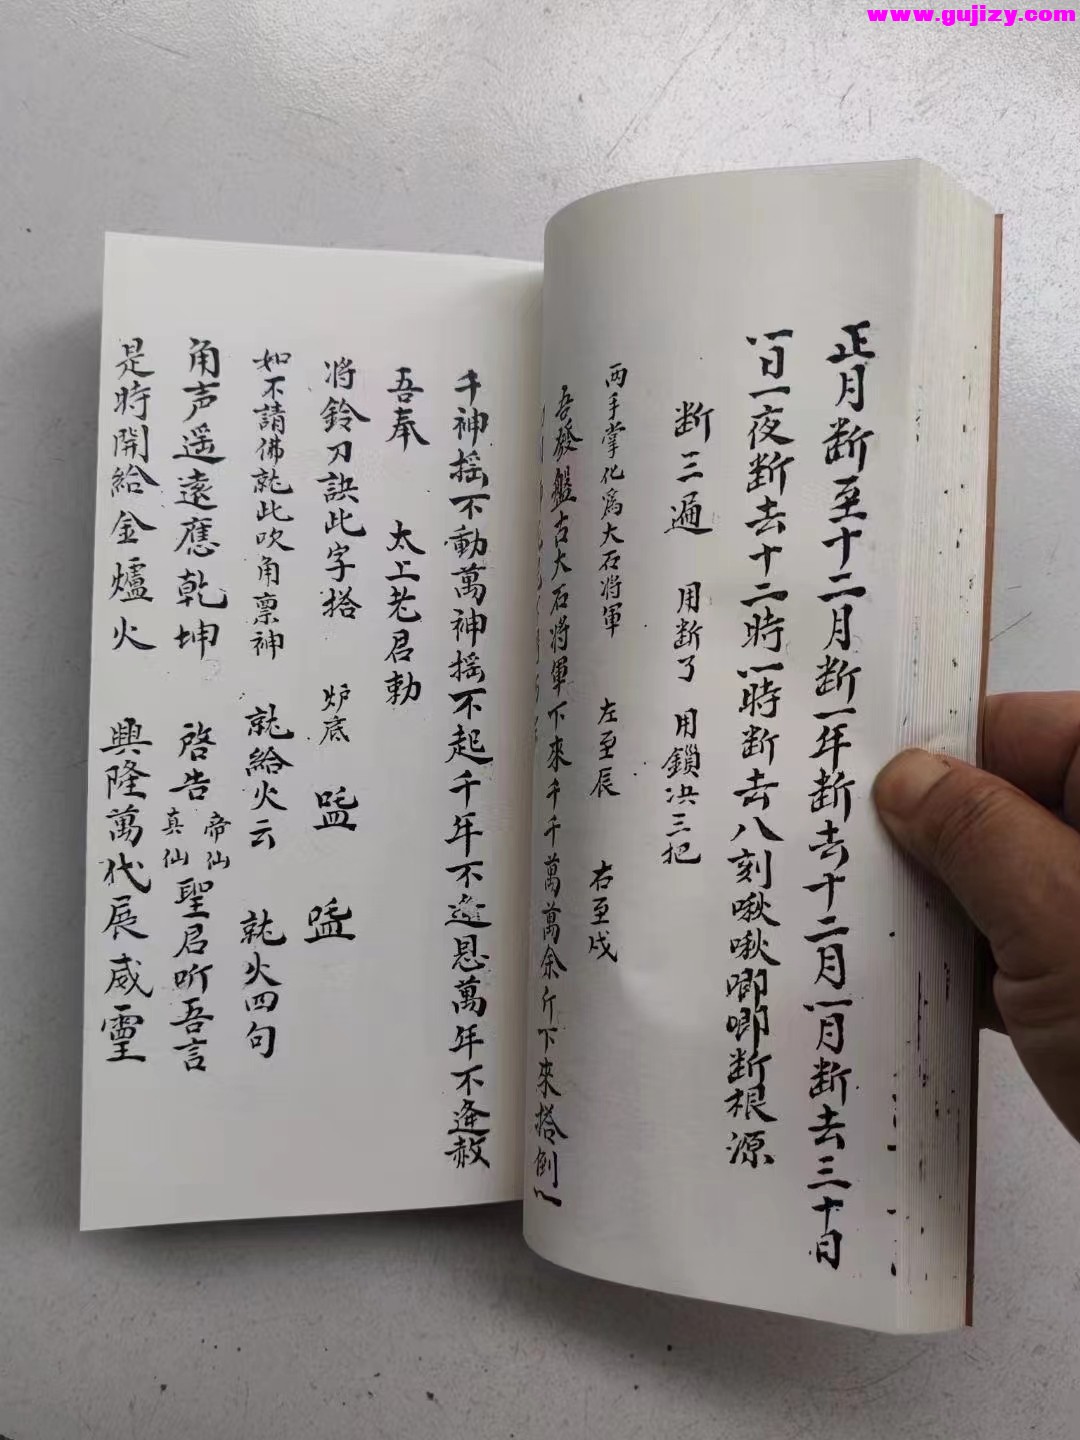 www.gujizy.com
正月断至十二月断一年断去十二月一月断去三十日
一日一夜断去十二時一時断去八刻啾啾唧唧断根源
断三遍 用断了 用鎖决三把
両手掌化爲大石将軍 左至辰 右至戌
吾發盤古大石将軍下來千千萬萬余斤下來搭倒
千神揺不動萬神揺不起千年不逢恩萬年不逢赦
吾奉 太上老君勅
将鈴刀訣此字搭 炉底
如不請佛就此吹角禀神 就給火云 就火四句
角声遥遠應乾坤 啓告帝仙真仙聖君听吾言
是時開給金爐火 興隆萬代展威靈